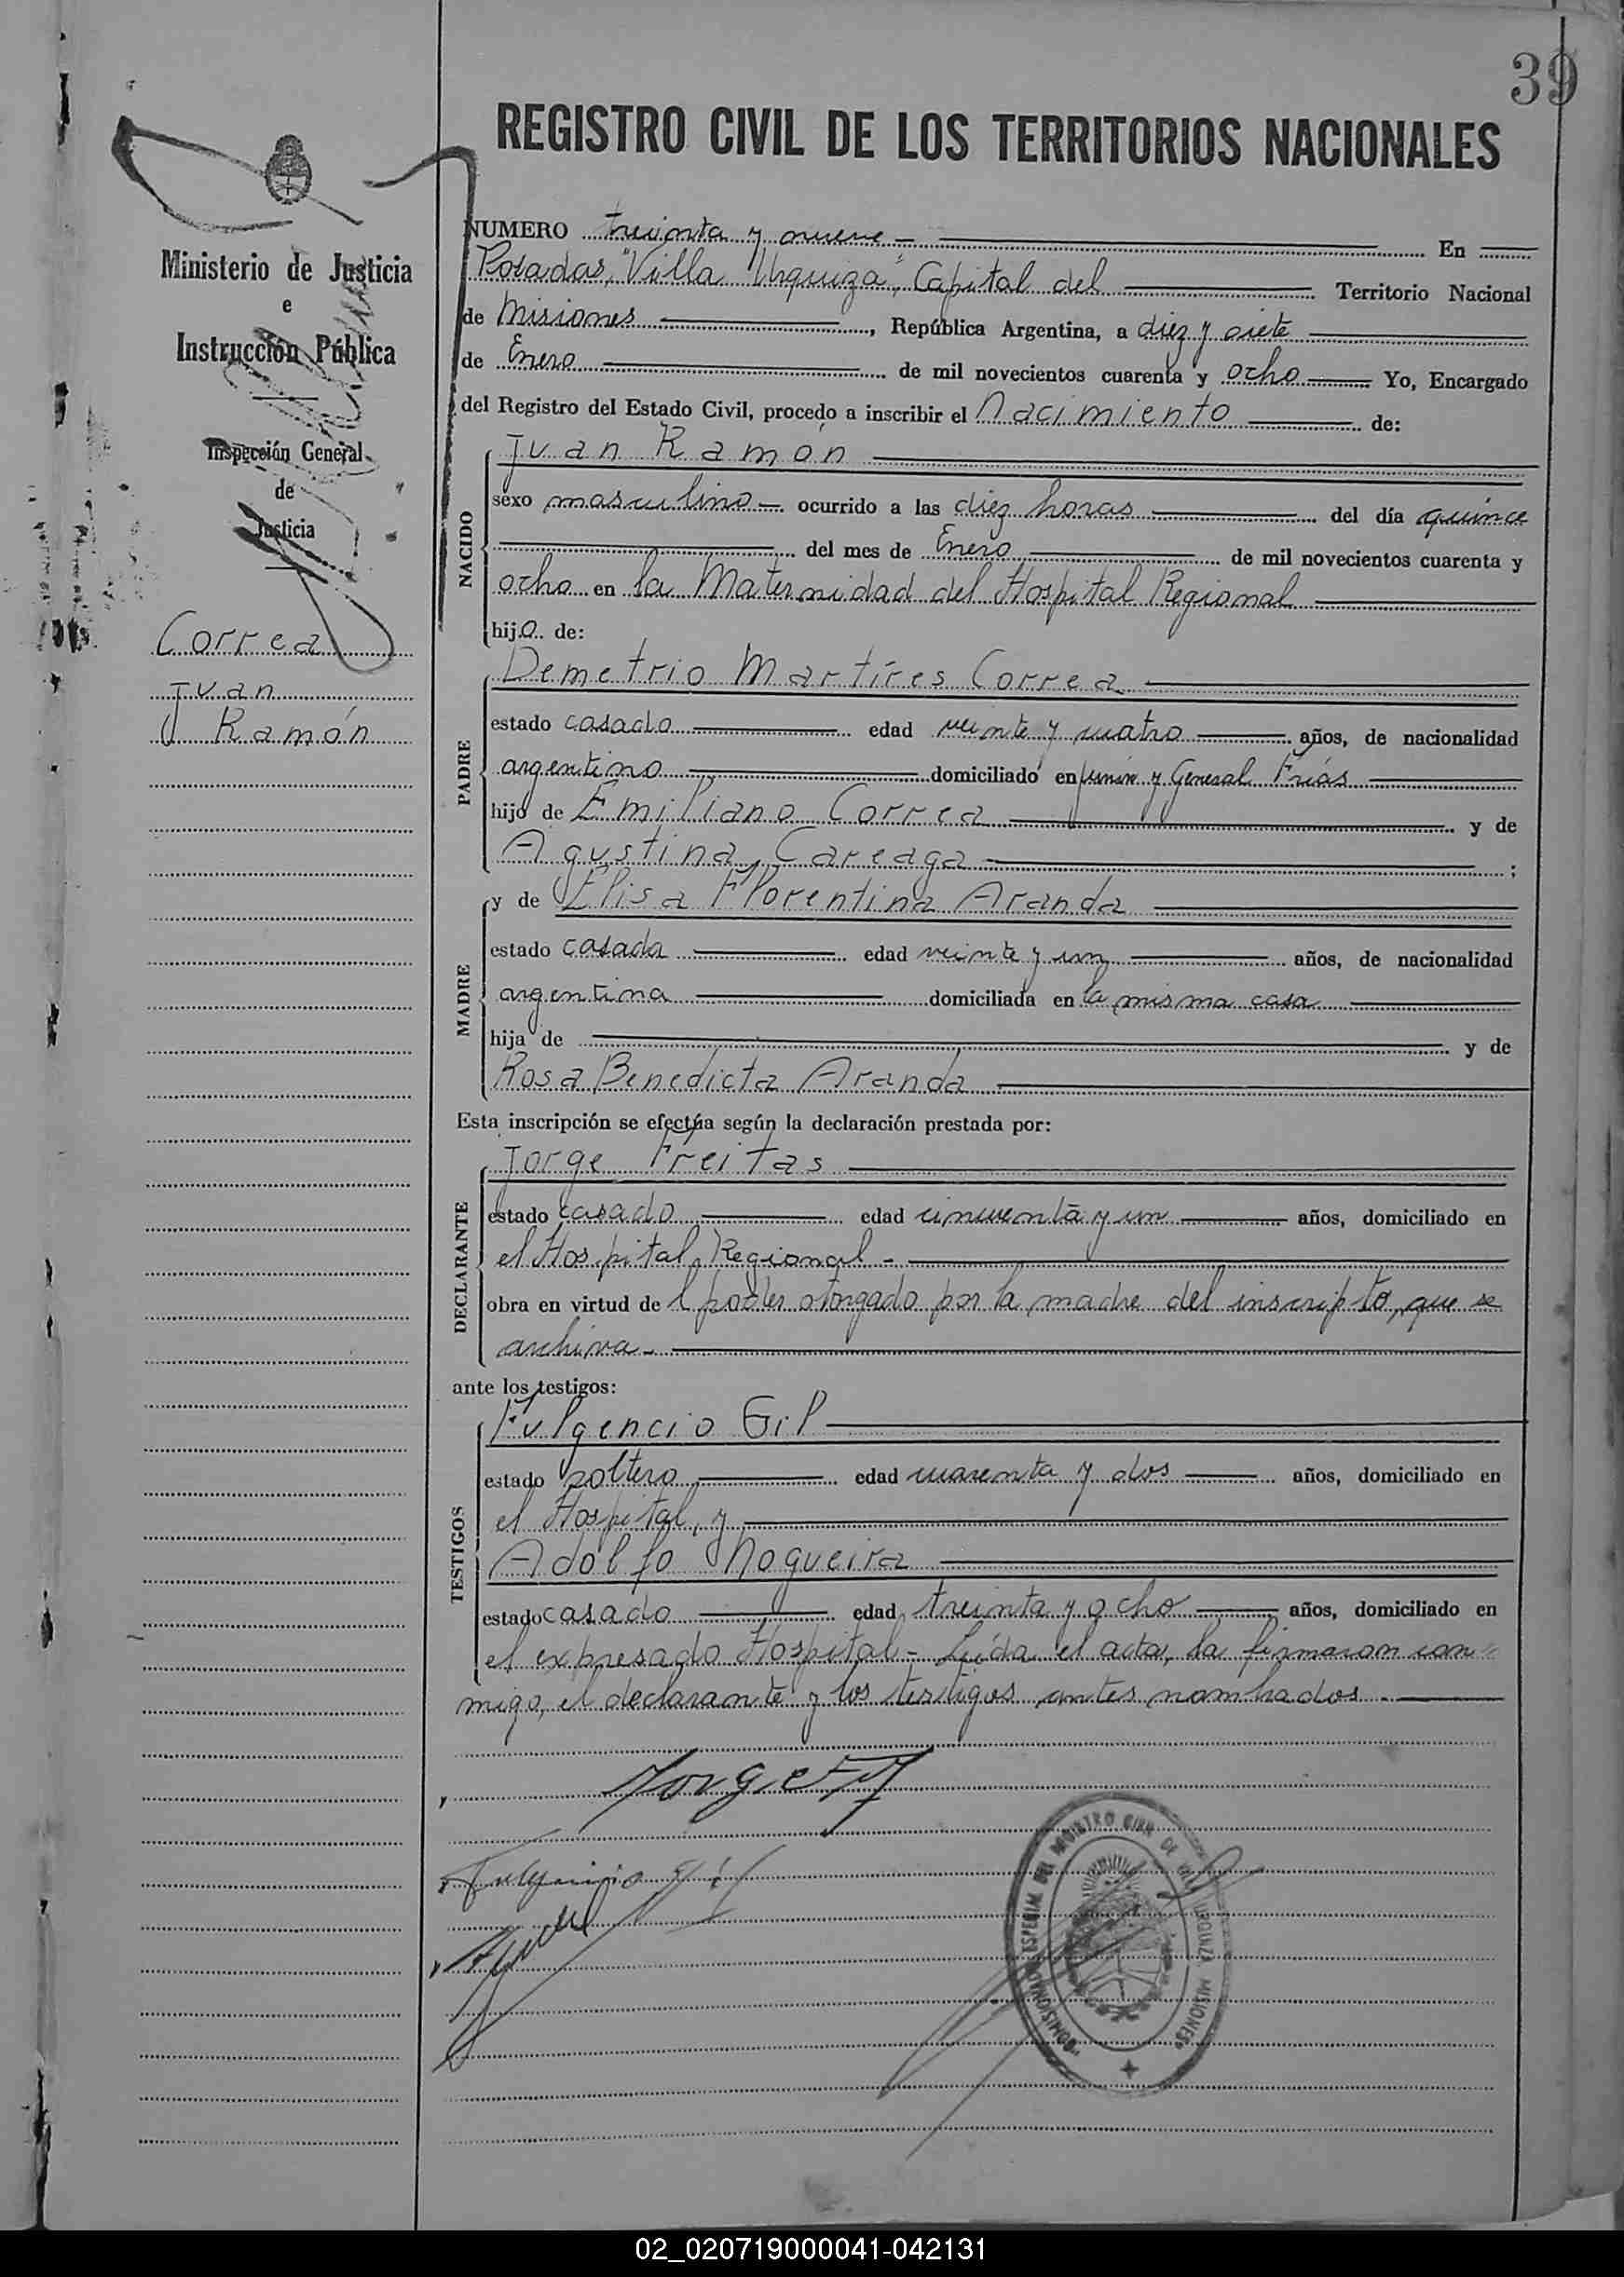 39
REGISTRO CIVIL DE LOS TERRITORIOS NACIONALES
Ministerio de Justicia
e
Instrucción Pública
Inspección General
de
Justicia
Correa
Juan
Ramón
NUMERO treinta y nueve - En
Posadas, "Villa Urquiza", Capital del Territorio Nacional
de Misiones, República Argentina, a diez y siete
de Enero de mil novecientos cuarenta y ocho Yo, Encargado
del Registro del Estado Civil, procedo a inscribir el Nacimiento de:
NACIDO
Juan Ramón
sexo masculino - ocurrido a las diez horas del día quince
del mes de Enero de mil novecientos cuarenta y
ocho en la Maternidad del Hospital Regional
hijo de:
PADRE
Demetrio Martíres Correa
estado casado edad veinte y cuatro años, de nacionalidad
argentino domiciliado en Junín y General Frías
hijo de Emiliano Correa y de
Agustina Careaga ;
MADRE
y de Elisa Florentina Aranda
estado casada edad veinte y un años, de nacionalidad
argentina domiciliada en la misma casa
hija de y de
Rosa Benedicta Aranda
Esta inscripción se efectúa según la declaración prestada por:
DECLARANTE
Jorge Freitas
estado casado edad cincuenta y un años, domiciliado en
el Hospital Regional -
obra en virtud de l poder otorgado por la madre del inscripto, que se
archiva -
ante los testigos:
TESTIGOS
Fulgencio Gil
estado soltero edad cuarenta y dos años, domiciliado en
el Hospital, y
Adolfo Nogueira
estado casado edad treinta y ocho años, domiciliado en
el expresado Hospital - Leída el acta, la firmaron con-
migo, el declarante y los testigos antes nombrados.
Jorge
Fulgencio Gil
COMISIONADO ESPECIAL DEL REGISTRO CIVIL DE VILLA URQUIZA MISIONES
02_020719000041-042131